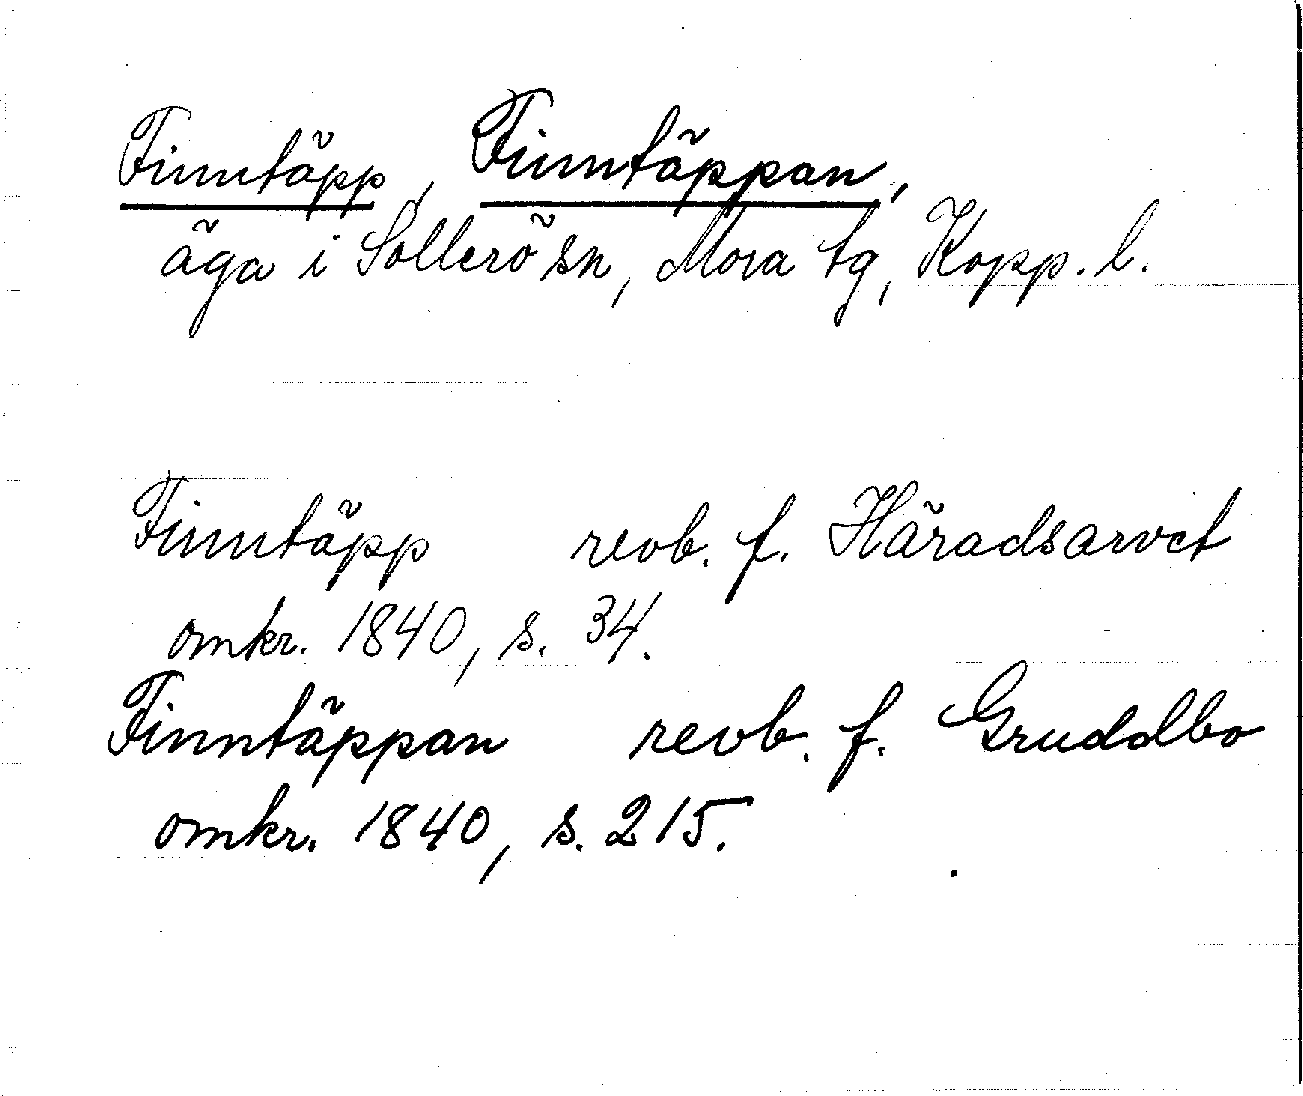 Finntäpp, Finntäppan,
äga i Sollerö sn, Mora tg, Kopp. l.
Finntäpp revb. f. Häradsarvet
omkr. 1840, s. 34.
Finntäppan revb. f. Gruddbo
omkr. 1840, s. 215.